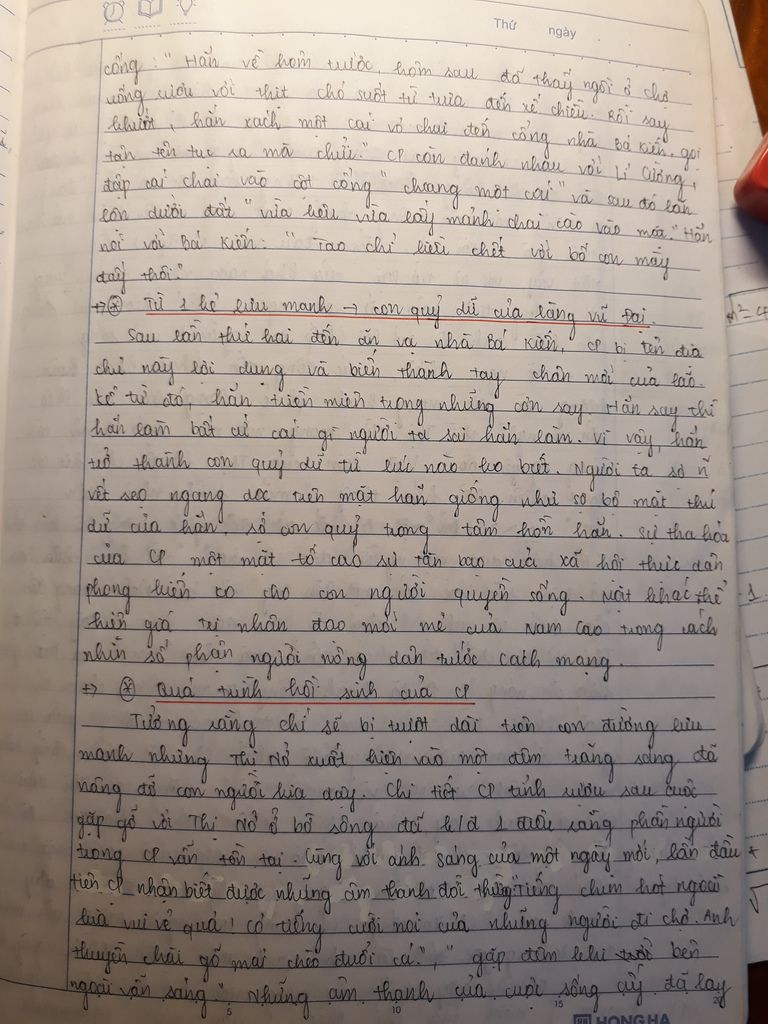 Thứ ngày
cổng: "Hắn về hôm trước, hôm sau đã thấy ngồi ở chợ
uống rượu với thịt chó suốt từ trưa đến xế chiều. Rồi say
khướt, hắn xách một cái vỏ chai đến cổng nhà Bá Kiến, gọi
tận tên tục ra mà chửi." CP còn đánh nhau với Lí Cường,
đập cái chai vào cột cổng "choang một cái" và sau đó lăn
lộn dưới đất "vừa kêu vừa lấy mảnh chai cào vào mặt." Hắn
nói với Bá Kiến: "Tao chỉ liều chết với bố con mày
đấy thôi."
=> * Từ 1 kẻ lưu manh → con quỷ dữ của làng Vũ Đại.
Sau lần thứ hai đến ăn vạ nhà Bá Kiến, CP bị tên địa
chủ này lợi dụng và biến thành tay chân mới của lão.
Kể từ đó, hắn triền miên trong những cơn say. Hắn say thì
hắn làm bất cứ cái gì người ta sai hắn làm. Vì vậy, hắn
trở thành con quỷ dữ từ lúc nào ko biết. Người ta sợ n~
vết sẹo ngang dọc trên mặt hắn giống như sợ bộ mặt thú
dữ của hắn, sợ con quỷ trong tâm hồn hắn. Sự tha hóa
của CP một mặt tố cáo sự tàn bạo của xã hội thực dân
phong kiến ko cho con người quyền sống. Mặt khác thể
hiện giá trị nhân đạo mới mẻ của Nam Cao trong cách
nhìn số phận người nông dân trước cách mạng.
=> * Quá trình hồi sinh của CP
Tưởng rằng chí sẽ bị trượt dài trên con đường lưu
manh nhưng Thị Nở xuất hiện vào một đêm trăng sáng đã
nâng đỡ con người kia dậy. Chi tiết CP tỉnh rượu sau cuộc
gặp gỡ với Thị Nở ở bờ sông đã k/đ 1 điều rằng phần người
trong CP vẫn tồn tại. Cùng với ánh sáng của một ngày mới, lần đầu
tiên CP nhận biết được những âm thanh đời thường "Tiếng chim hót ngoài
kia vui vẻ quá! Có tiếng cười nói của những người đi chợ. Anh
thuyền chài gõ mái chèo đuổi cá.", "gặp đêm khi bên
ngoài vẫn sáng." Những âm thanh của cuộc sống ấy đã lay
5 10 15 20
HONG HA